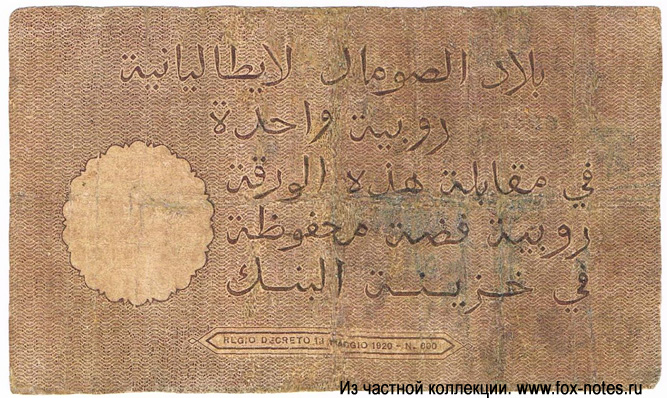 بلاد الصومال لايطاليانية
روبية واحدة
في مقابلة هذه الورقة
روبية فضة محفوظة
في خزينة البنك
REGIO DECRETO 13 MAGGIO 1920 - N. 600
Из частной коллекции. www.fox-notes.ru